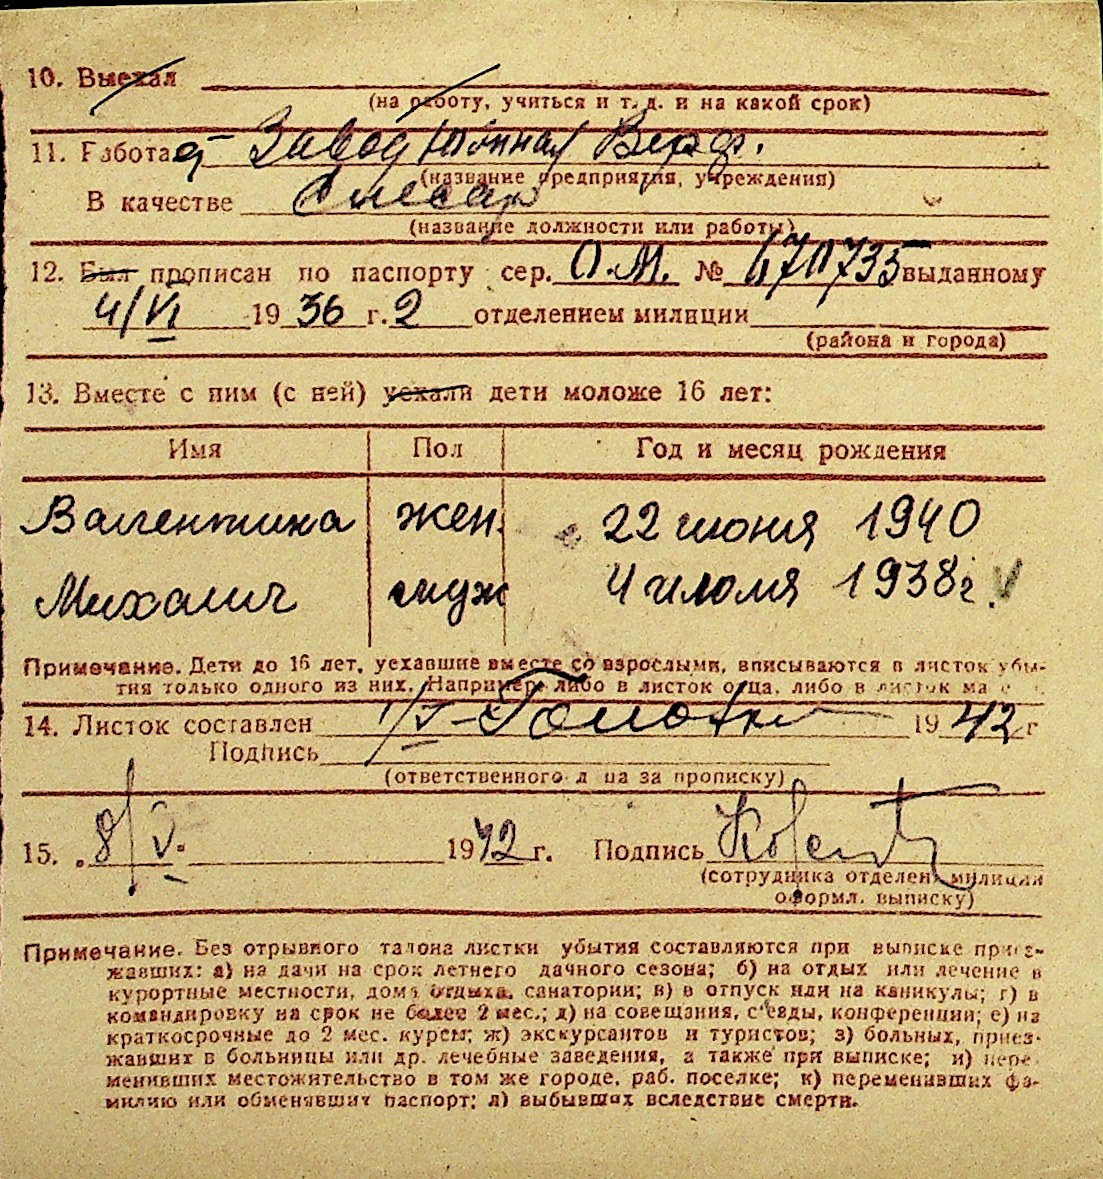 10. Выехал
(на работу, учиться и т. д. и на какой срок)
11. Работает Завод Южная Верф.
(название предприятия, учреждения)
В качестве Слесар
(название должности или работы)
12. Был прописан по паспорту сер. О.М. № 670735 выданному
4/VI 1936 г. 2 отделением милиции
(района и города)
13. Вместе с ним (с ней) уехали дети моложе 16 лет:
Имя Пол Год и месяц рождения
Валентина жен. 22 июня 1940
Михалич муж 4 июля 1938г.
Примечание. Дети до 16 лет, уехавшие вместе со взрослыми, вписываются в листок убы-
тия только одного из них. Например: либо в листок отца, либо в листок ма
14. Листок составлен 1942 г
Подпись
(ответственного лица за прописку)
15. 8/V. 1942 г. Подпись
(сотрудника отделен. милиции
оформл. выписку)
Примечание. Без отрывного талона листки убытия составляются при выписке приез-
жавших: а) на дачи на срок летнего дачного сезона; б) на отдых или лечение в
курортные местности, дома отдыха, санатории; в) в отпуск или на каникулы; г) в
командировку на срок не более 2 мес.; д) на совещания, съезды, конференции; е) на
краткосрочные до 2 мес. курсы; ж) экскурсантов и туристов; з) больных, приез-
жавших в больницы или др. лечебные заведения, а также при выписке; и) пере-
менивших местожительство в том же городе, раб. поселке; к) переменивших фа-
милию или обменявших паспорт; л) выбывших вследствие смерти.